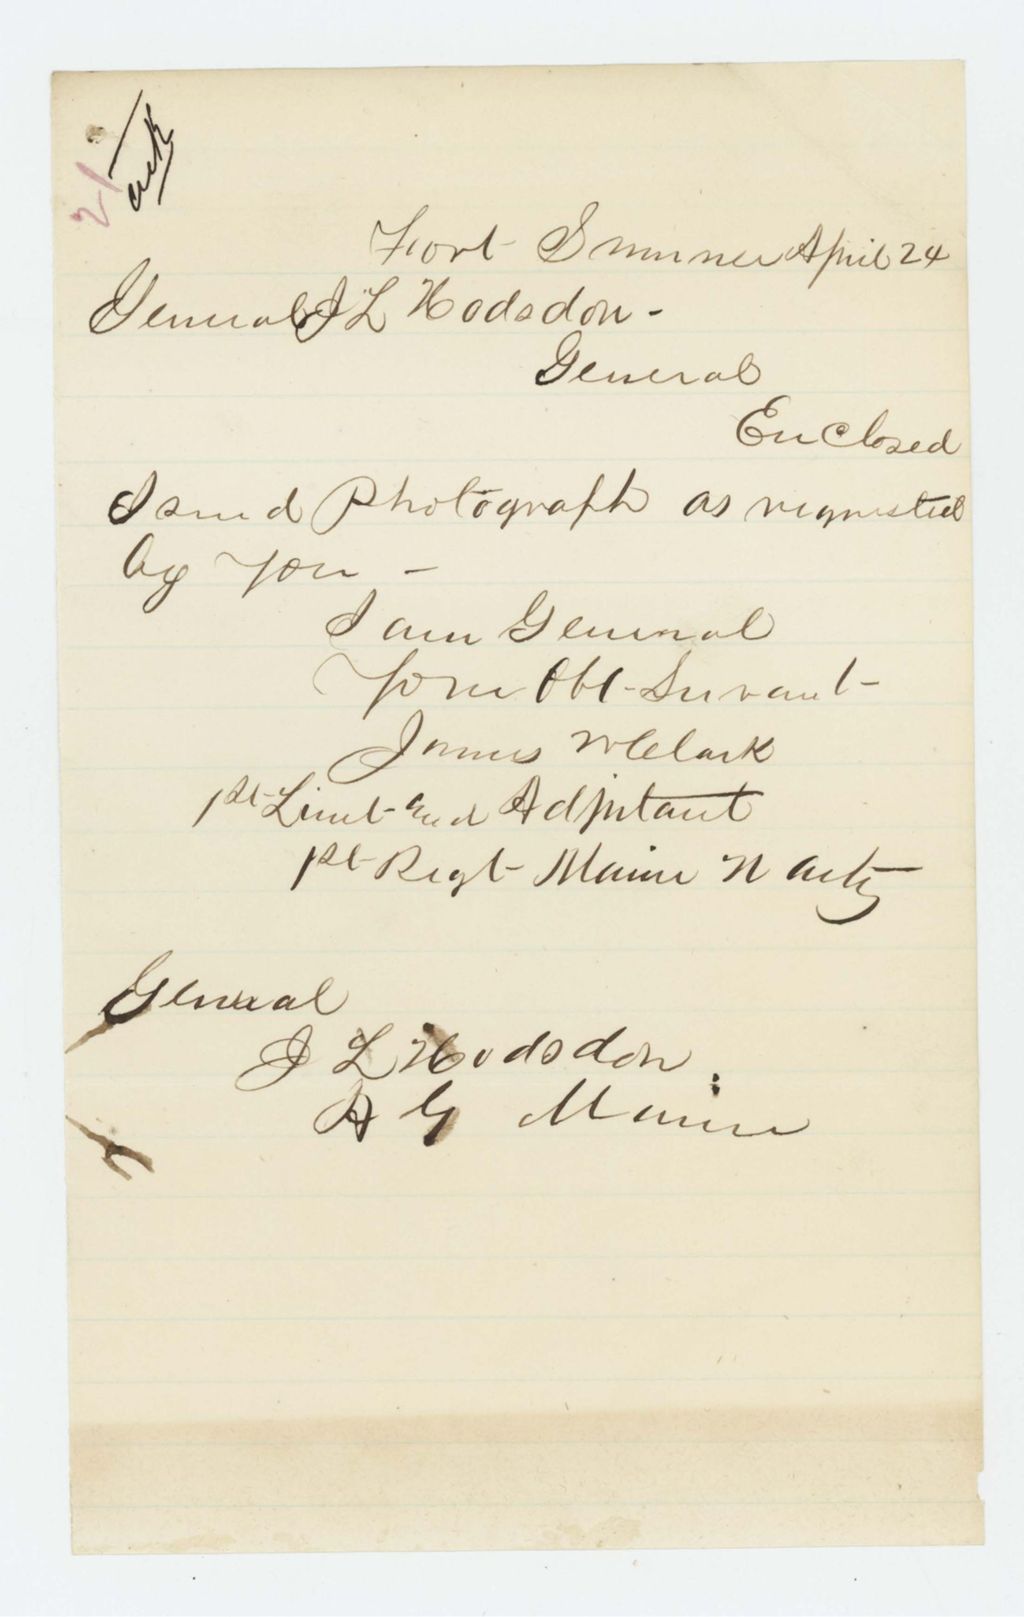 21
Fort Sumner April 24
General J L Hodsdon -
General
Enclosed
I send Photograph as requested
by You -
I am General
Your Obt - Servant -
James W Clark
1st - Lieut - and Adjutant
1st - Regt - Maine H Arty
General
J L Hodsdon
A G Maine